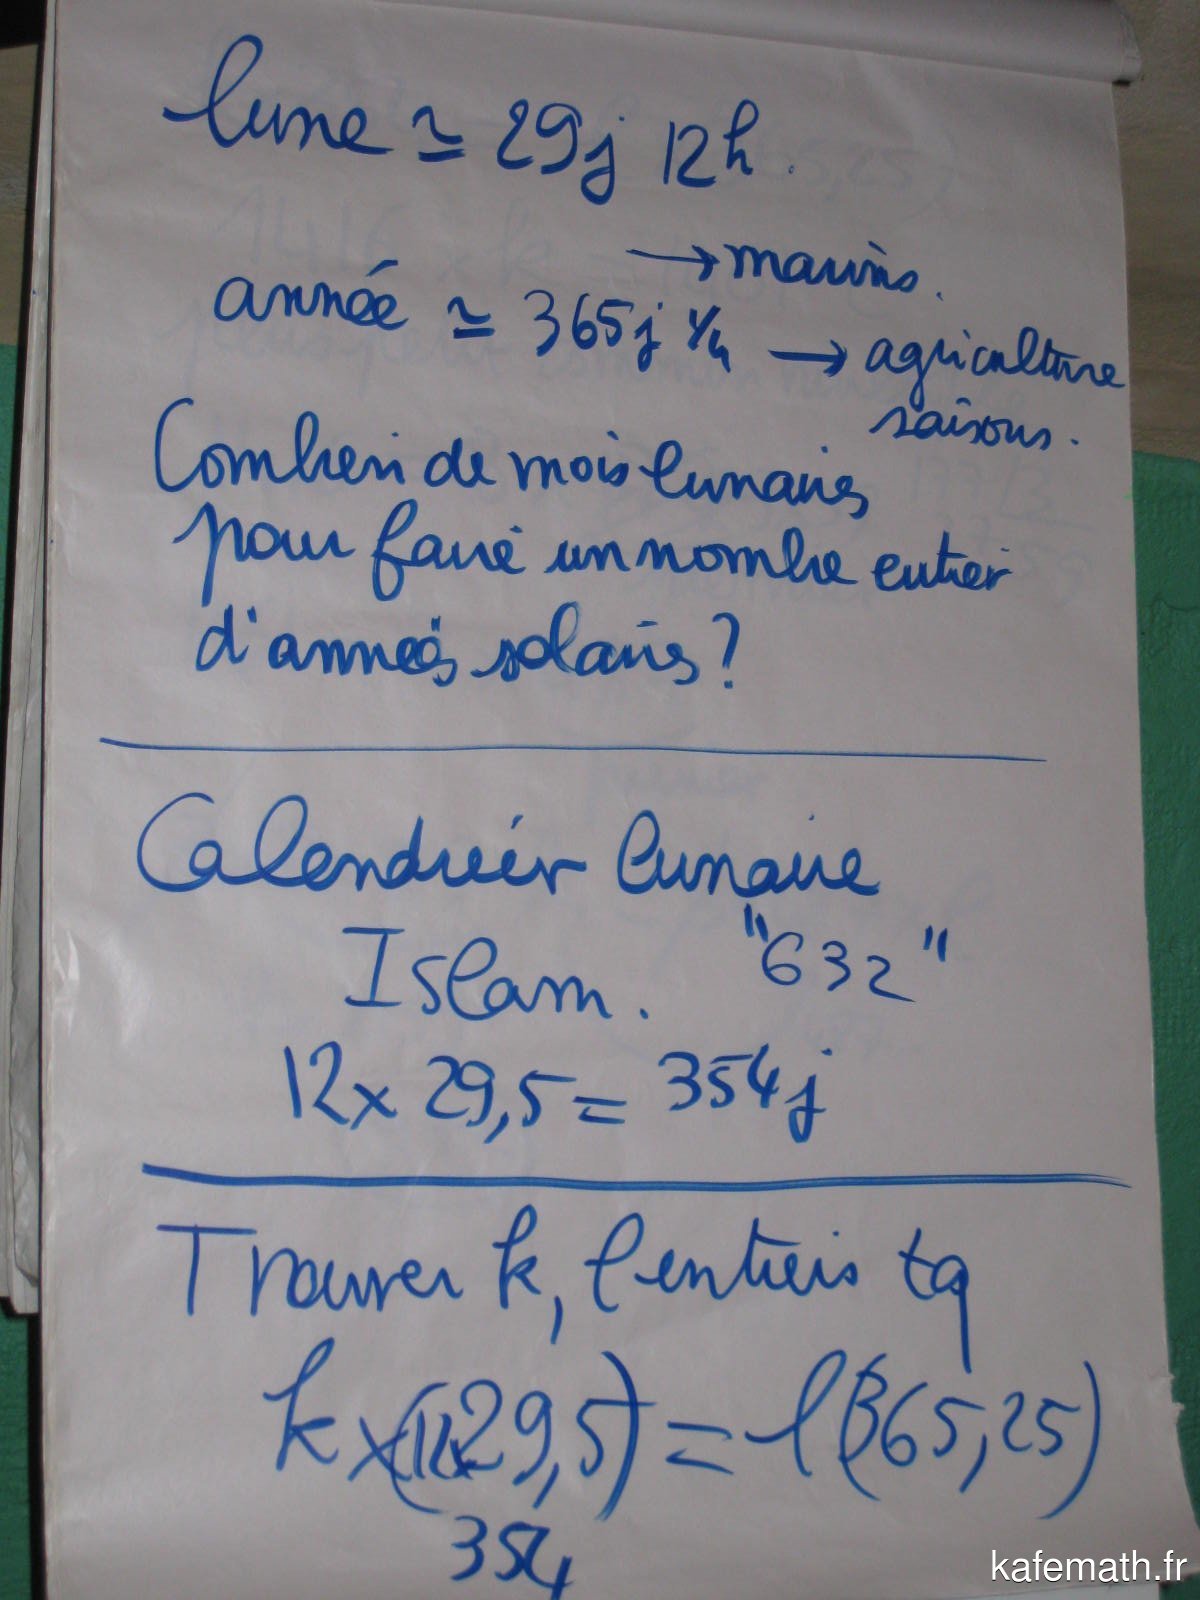 lune ≃ 29j 12h.
→ marins.
année ≃ 365j 1/4 → agriculture
saisons.
Combien de mois lunaires
pour faire un nombre entier
d'années solaires ?
Calendrier lunaire
Islam. "632"
12 x 29,5 = 354j
Trouver k, l entiers tq
k x (12x29,5) = l(365,25)
354
kafemath.fr